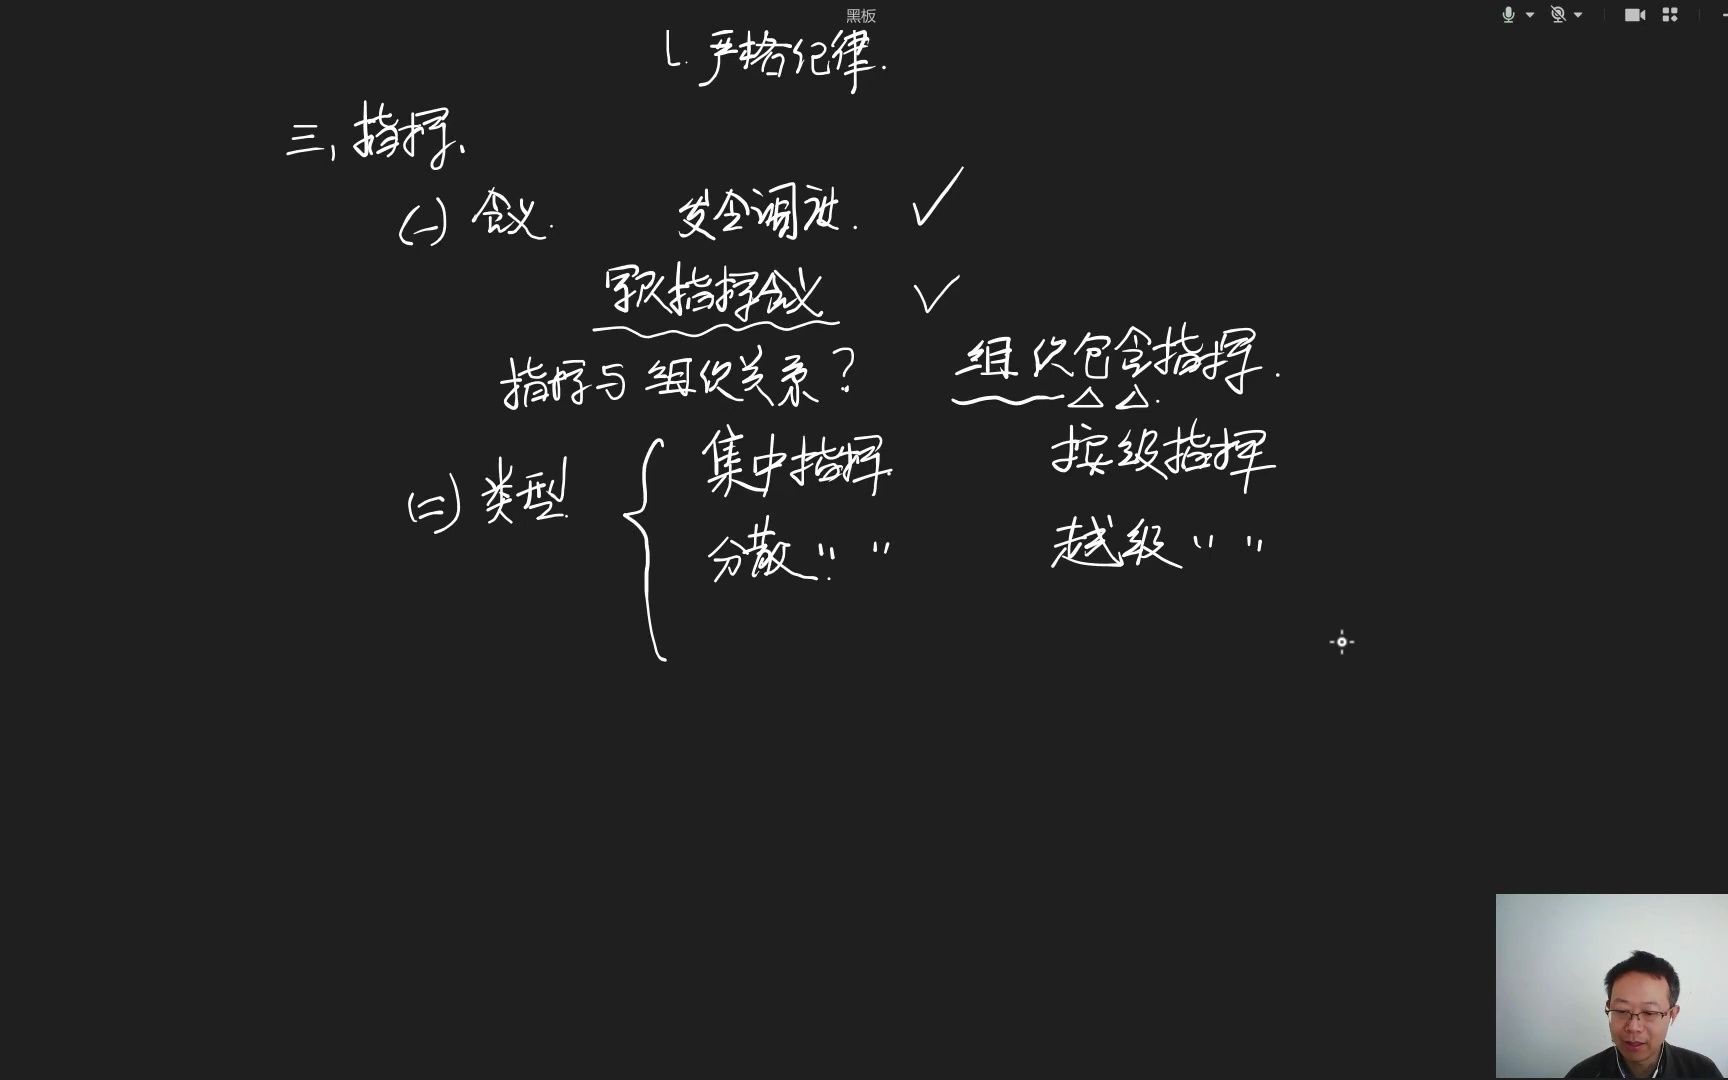 黑板
1. 严格纪律.
三、指挥、
(一) 含义. 发令调度. ✓
军队指挥含义 ✓
指挥与组织关系? 组织包含指挥.
集中指挥 按级指挥
(二) 类型
分散 〃 〃 越级 〃 〃